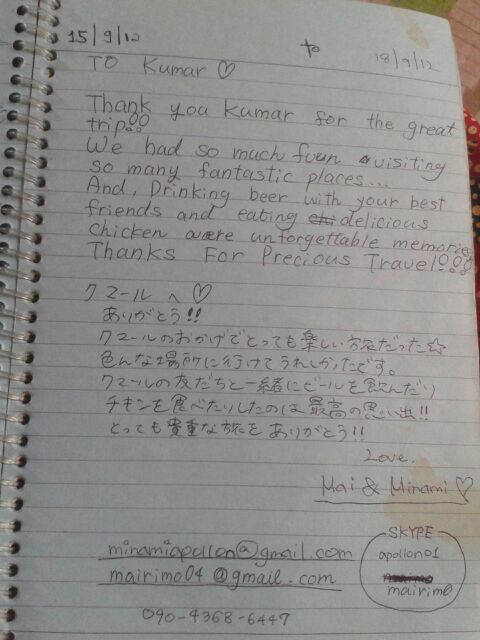 15/9/12 to 18/9/12
TO Kumar ♡
Thank you Kumar for the great
trip!!
We had so much fun visiting
so many fantastic places...
And, Drinking beer with your best
friends and eating delicious
chicken were unforgettable memories
Thanks For Precious Travel!!!
クマール へ ♡
ありがとう!!
クマールのおかげでとっても楽しい旅だった☆
色んな場所に行けてうれしかったです。
クマールの友だちと一緒にビールを飲んだり
チキンを食べたりしたのは最高の思い出!!
とっても貴重な旅を ありがとう!!
Love,
Mai & Minami ♡
minamiapollon@gmail.com
mairimo04@gmail.com
090-4368-6447
SKYPE
apollon01
mairimo